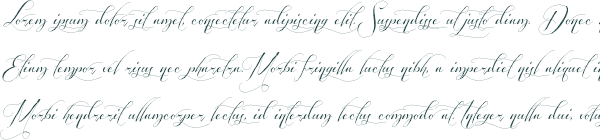 Lorem ipsum dolor sit amet, consectetur adipiscing elit. Suspendisse ut justo diam. Donec
Etiam tempor vel risus nec pharetra. Morbi fringilla luctus nibh, a imperdiet nisl aliquet
Morbi hendrerit ullamcorper lectus, id interdum lectus commodo at. Integer nulla dui,